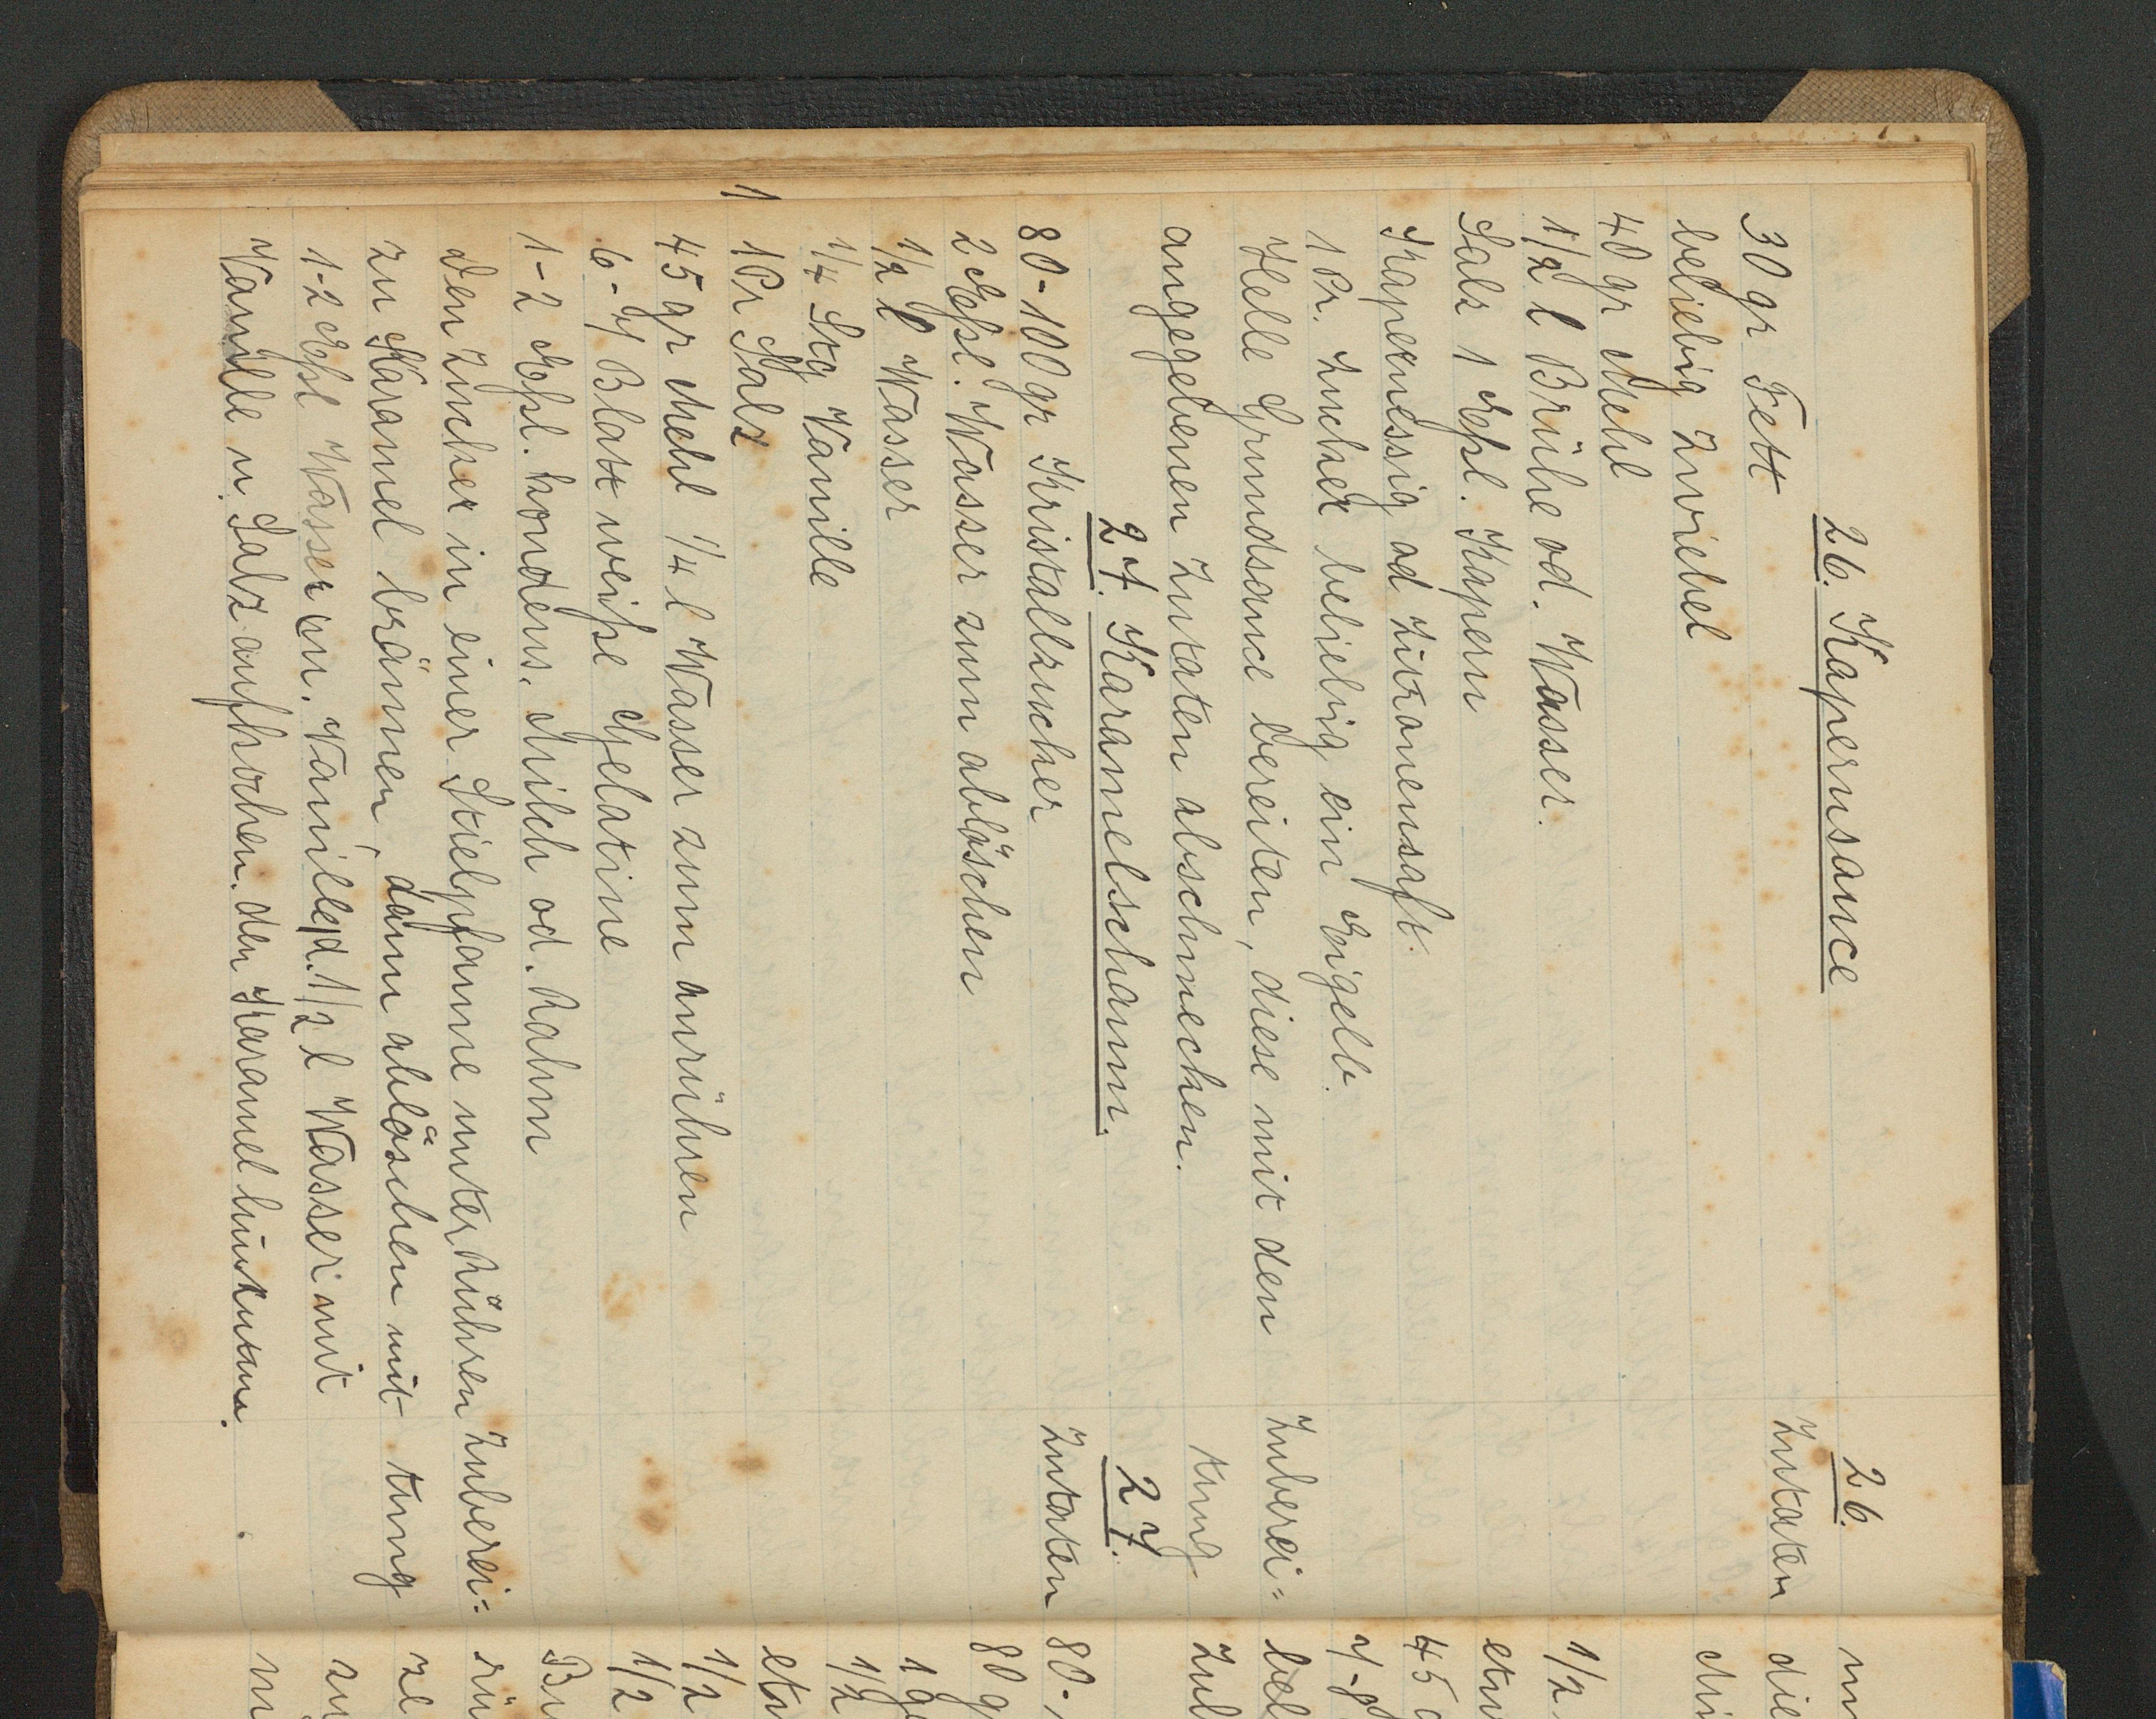 26. Kapernsauce
26.
30 gr Fett
Zutaten
beliebig Zwiebel
40 gr Mehl
1/2 l Brühe od. Wasser.
Salz 1 Eßl. Kapern
Kapernessig od Zitronensaft.
1 Pr. Zucker beliebig ein Eigelb.
Helle Grundsauce bereiten, diese mit den
Zuberei=
angegebenen Zutaten abschmecken.
tung
27. Karamelschaum.
27.
80-100 gr Kristallzucker
Zutaten
2 Eßl. Wasser zum ablöschen
1/2 l Wasser
1/4 Stg Vanille
1 Pr Salz
1
45 gr Mehl 1/4 l Wasser zum anrühren
6-7 Blatt weiße Gelatine
1-2 Eßl. kondens. Milch od. Rahm
Den Zucker in einer Stielpfanne unter Rühren
Zuberei=
zu Karamel bräunen, dann ablöschen mit
tung
1-2 Eßl Wasser an. Vanille d. 1/2 l Wasser mit
Vanille u. Salz aufkochen. den Karamel hinzutun.
die
1/2
45
7-8
80-
80 g
1/2
1/2
1/2